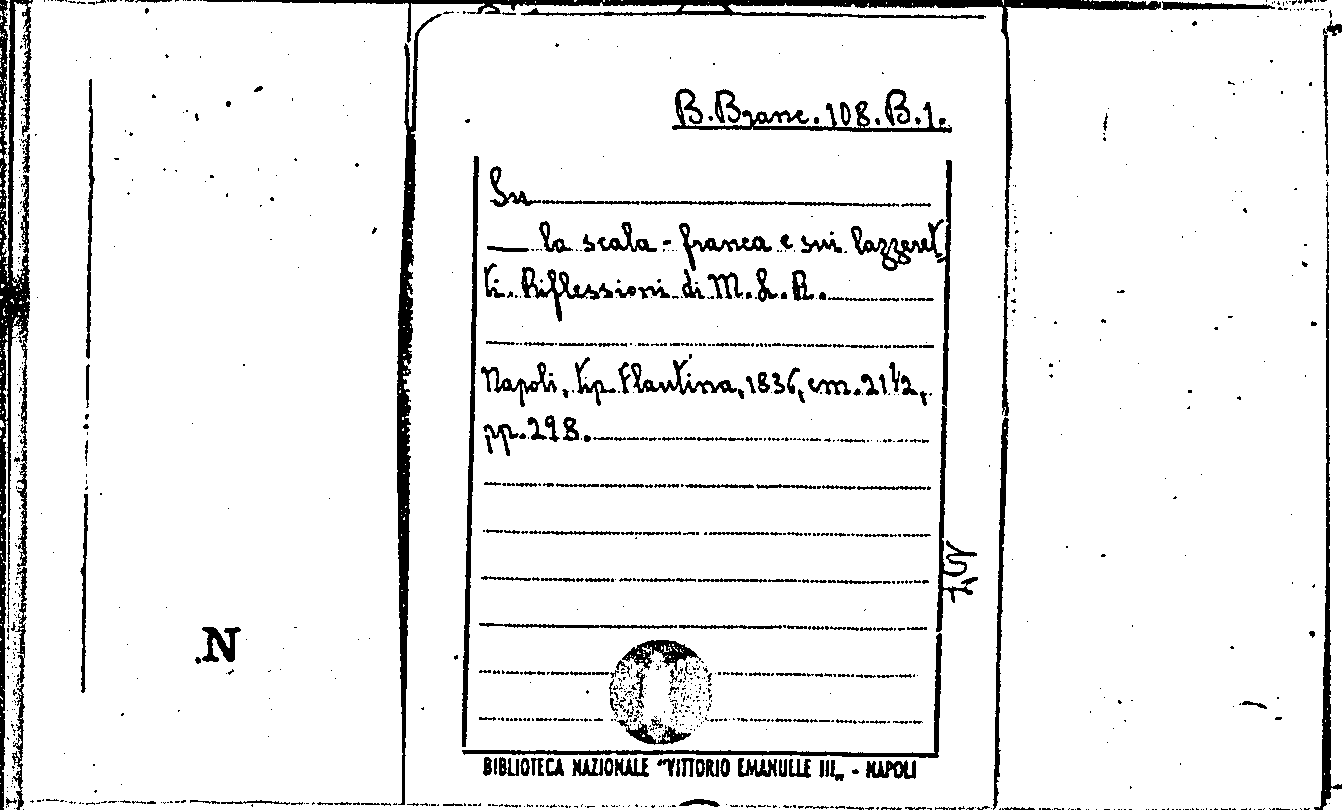 B.Branc.108.B.1.
Su
— la scala-franca e sui lazzeret
ti. Riflessioni di M.L.R.
Napoli, tip. Flautina, 1836, cm. 21½,
pp. 298.
N
BIBLIOTECA NAZIONALE "VITTORIO EMANUELE III„ - NAPOLI